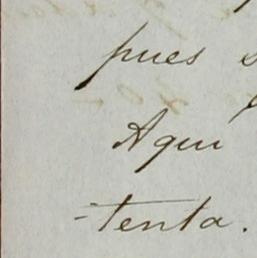 pues s
Aqui
-tenta.